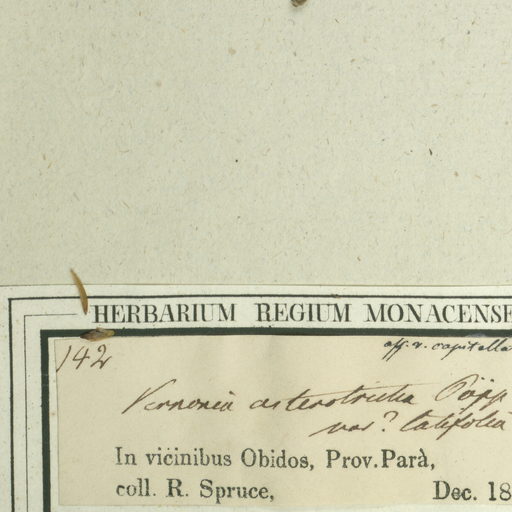 HERBARIUM REGIUM MONACENSE
142
aff. v. capitella
Vernonia asterotrichia Pöpp
var? latifolia
In vicinibus Obidos, Prov. Parà,
coll. R. Spruce, Dec. 18